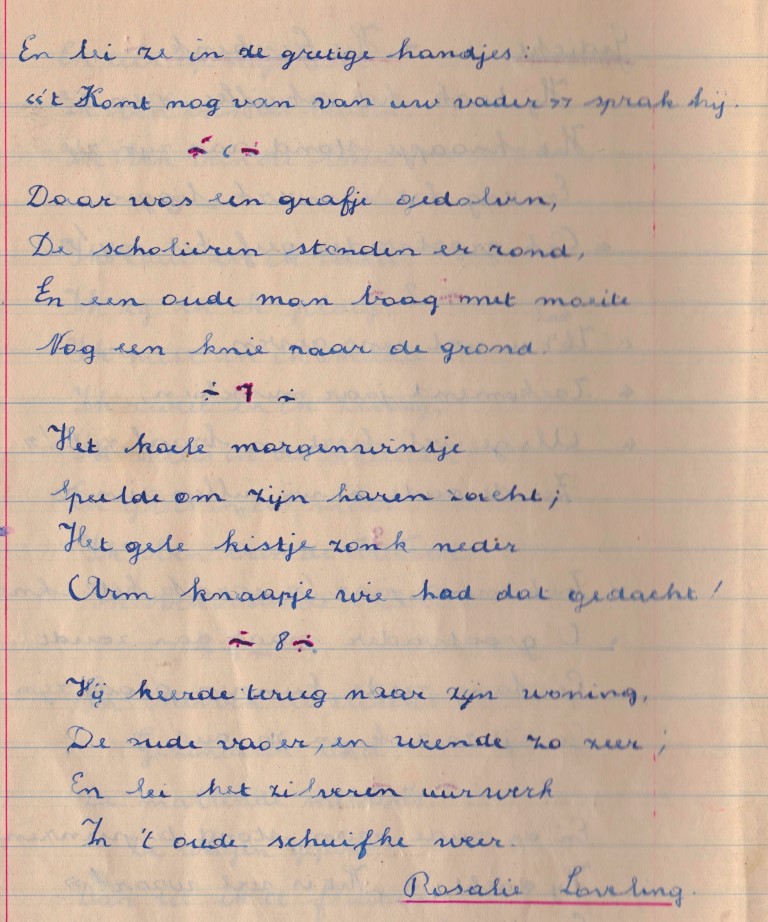 En lei ze in de gretige handjes:
«'t Komt nog van van uw vader» sprak hij.
÷ 6 ÷
Daar was een grafje gedolven,
De scholieren stonden er rond,
En een oude man boog met moeite
Nog een knie naar de grond.
÷ 7 ÷
Het koele morgenwindje
Speelde om zijn haren zacht;
Het gele kistje zonk neder
Arm knaapje wie had dat gedacht!
÷ 8 ÷
Hij keerde terug naar zijn woning,
De oude vader, en wende zo zeer;
En lei het zilveren uurwerk
In 't oude schuifke weer.
Rosalie Loveling.